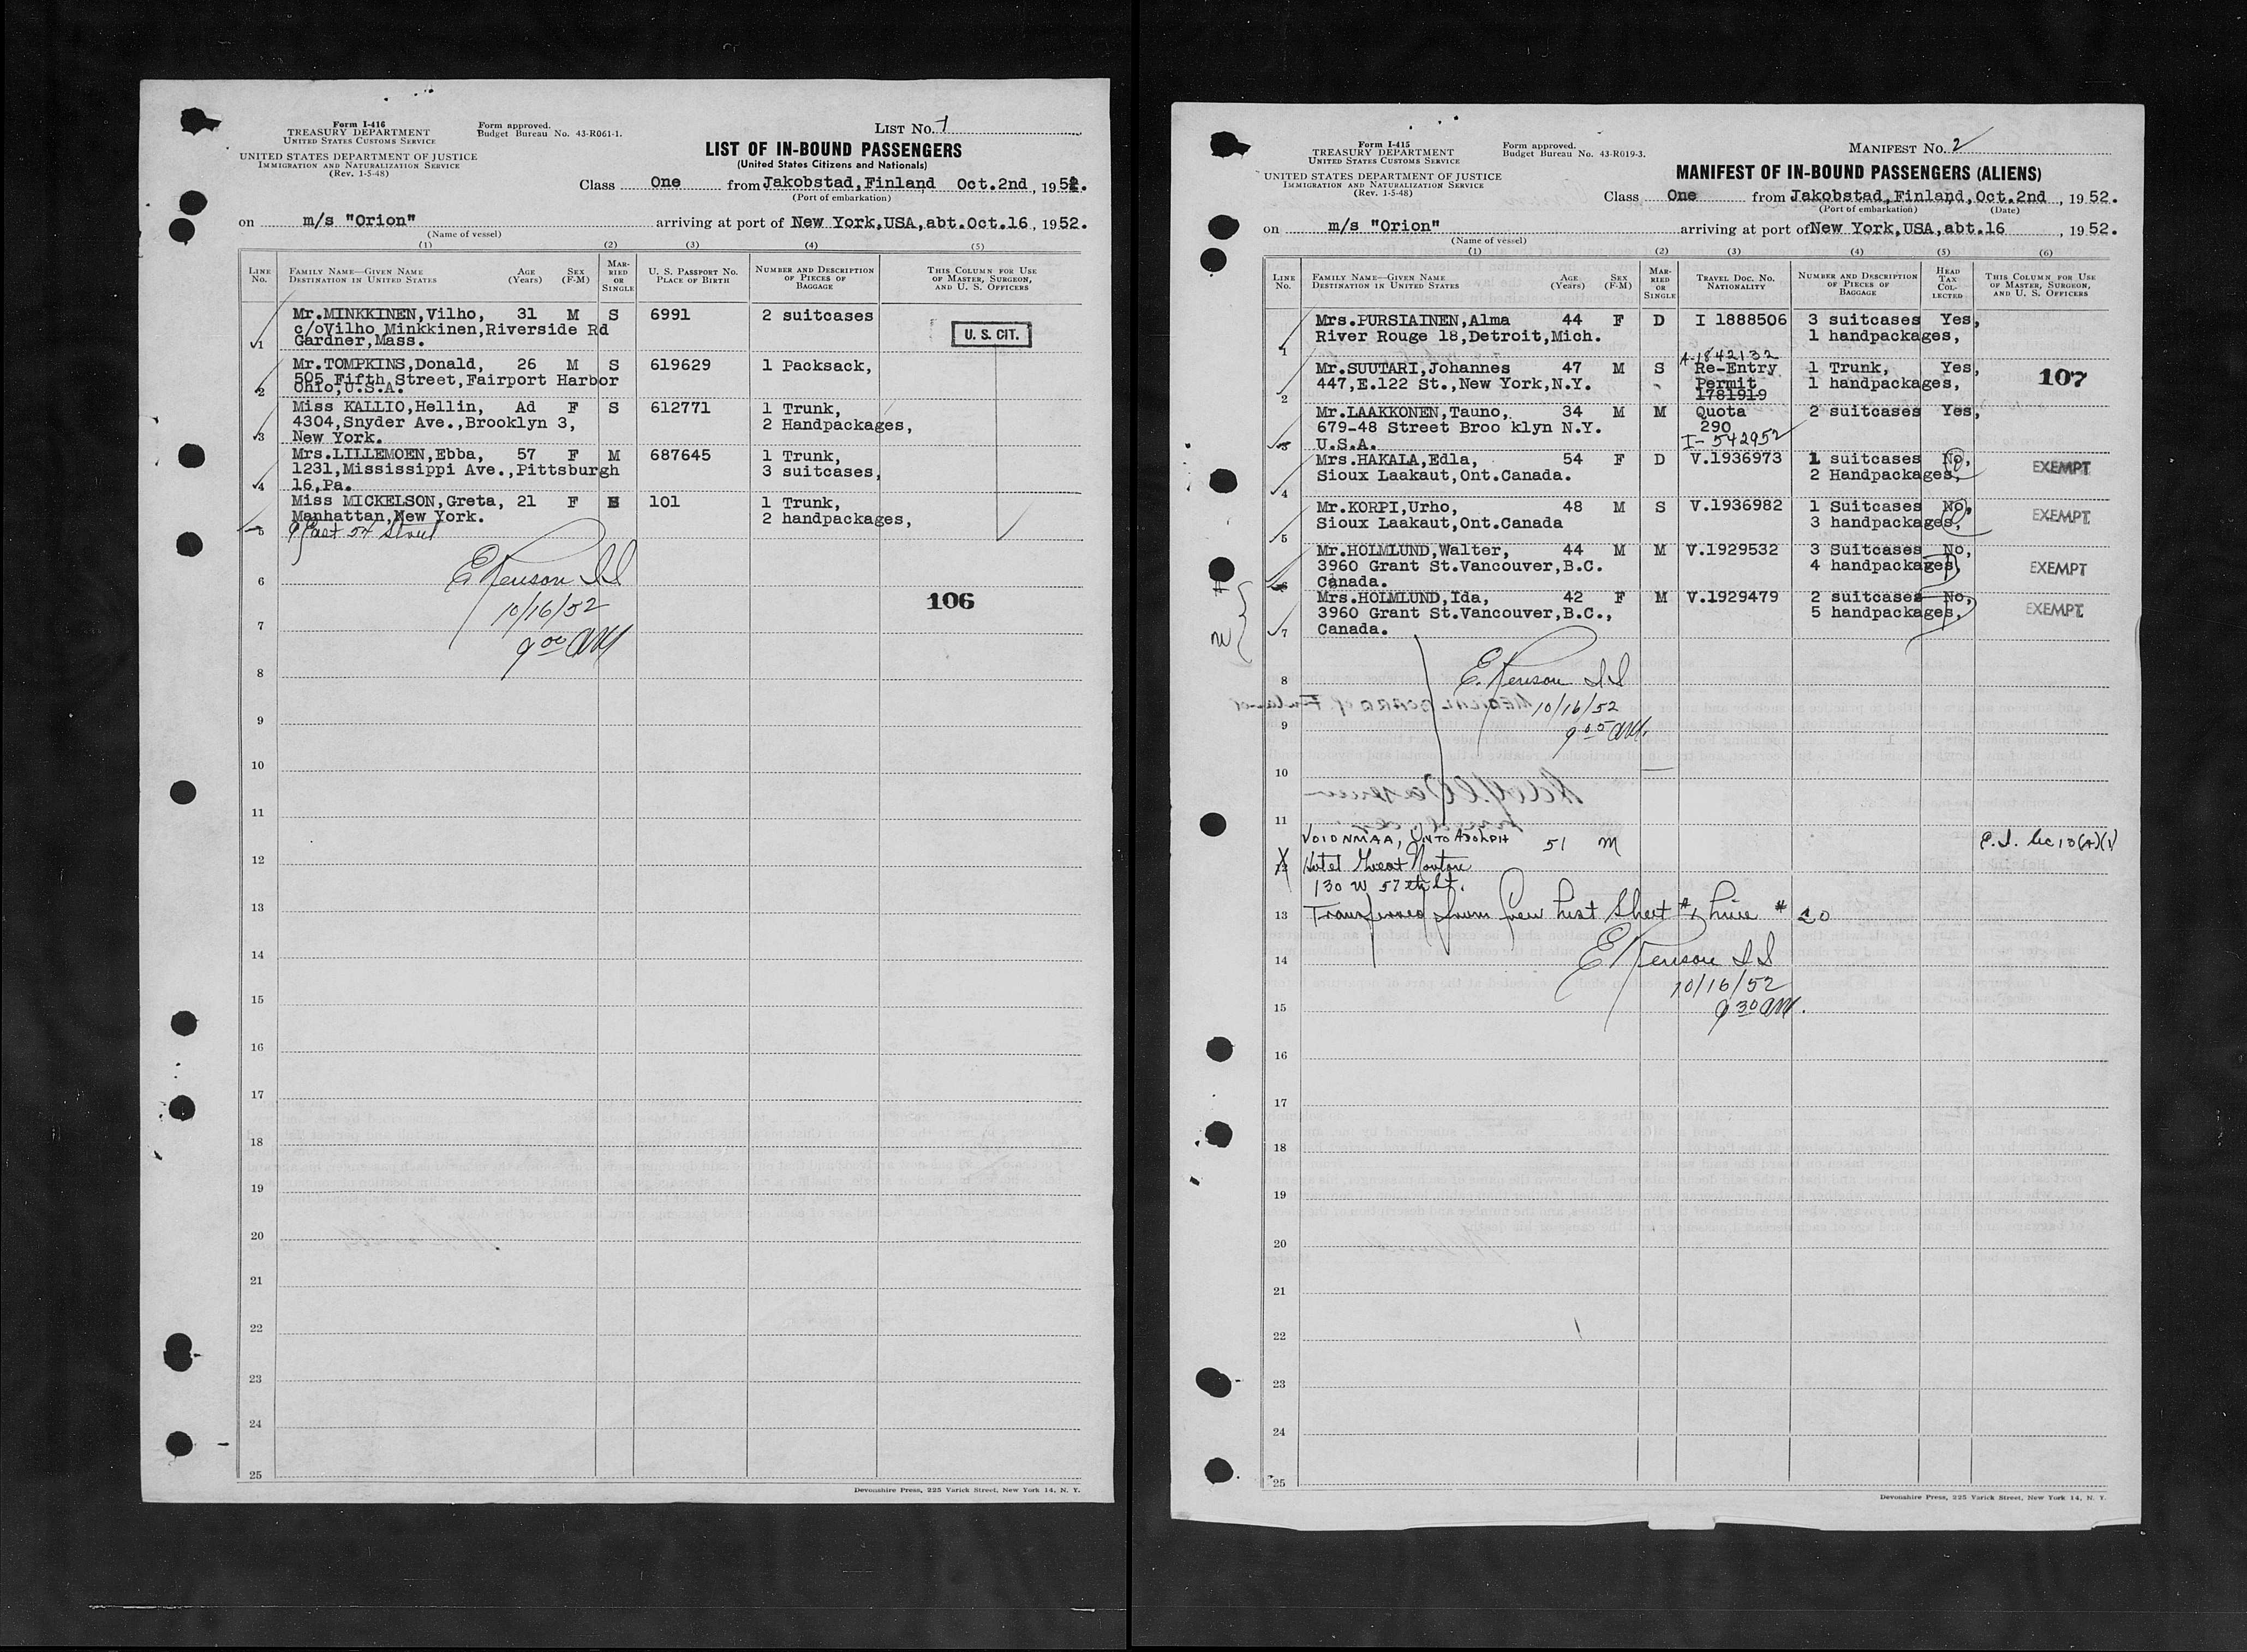 Form I-416
TREASURY DEPARTMENT
UNITED STATES CUSTOMS SERVICE
UNITED STATES DEPARTMENT OF JUSTICE
IMMIGRATION AND NATURALIZATION SERVICE
(Rev. 1-5-48)
Form approved.
Budget Bureau No. 43-R061-1.
LIST No. 1
LIST OF IN-BOUND PASSENGERS
(United States Citizens and Nationals)
Class One from Jakobstad, Finland Oct.2nd, 1952.
(Port of embarkation)
on m/s "Orion" arriving at port of New York,USA,abt.Oct.16, 1952.
(Name of vessel)
(1) (2) (3) (4) (5)
LINE No. FAMILY NAME—GIVEN NAME DESTINATION IN UNITED STATES AGE (Years) SEX (F-M) MARRIED OR SINGLE U. S. PASSPORT NO. PLACE OF BIRTH NUMBER AND DESCRIPTION OF PIECES OF BAGGAGE THIS COLUMN FOR USE OF MASTER, SURGEON, AND U. S. OFFICERS
Mr.MINKKINEN,Vilho, 31 M S 6991 2 suitcases
c/oVilho Minkkinen,Riverside Rd U. S. CIT.
1 Gardner,Mass.
Mr.TOMPKINS,Donald, 26 M S 619629 1 Packsack,
505 Fifth Street,Fairport Harbor
2 Ohio,U.S.A.
Miss KALLIO,Hellin, Ad F S 612771 1 Trunk,
4304,Snyder Ave.,Brooklyn 3, 2 Handpackages,
3 New York.
Mrs.LILLEMOEN,Ebba, 57 F M 687645 1 Trunk,
1231,Mississippi Ave.,Pittsburgh 3 suitcases,
4 16,Pa.
Miss MICKELSON,Greta, 21 F S 101 1 Trunk,
Manhattan,New York. 2 handpackages,
5 9 East 54 Street
6
10/16/52
106
7
9 00 AM
8
9
10
11
12
13
14
15
16
17
18
19
20
21
22
23
24
25
Devonshire Press, 225 Varick Street, New York 14, N. Y.
Form I-415
TREASURY DEPARTMENT
UNITED STATES CUSTOMS SERVICE
UNITED STATES DEPARTMENT OF JUSTICE
IMMIGRATION AND NATURALIZATION SERVICE
(Rev. 1-5-48)
Form approved.
Budget Bureau No. 43-R019-3.
MANIFEST No. 2
MANIFEST OF IN-BOUND PASSENGERS (ALIENS)
Class One from Jakobstad,Finland,Oct.2nd, 1952.
(Port of embarkation) (Date)
on m/s "Orion" arriving at port of New York,USA,abt.16, 1952.
(Name of vessel)
(1) (2) (3) (4) (5) (6)
LINE No. FAMILY NAME—GIVEN NAME DESTINATION IN UNITED STATES AGE (Years) SEX (F-M) MARRIED OR SINGLE TRAVEL DOC. NO. NATIONALITY NUMBER AND DESCRIPTION OF PIECES OF BAGGAGE HEAD TAX COLLECTED THIS COLUMN FOR USE OF MASTER, SURGEON, AND U. S. OFFICERS
Mrs.PURSIAINEN,Alma 44 F D I 1888506 3 suitcases Yes,
River Rouge 18,Detroit,Mich. 1 handpackages,
1
A-1842132
Mr.SUUTARI,Johannes 47 M S Re-Entry 1 Trunk, Yes,
447,E.122 St.,New York,N.Y. Permit 1 handpackages, 107
2 1781919
Mr.LAAKKONEN,Tauno, 34 M M Quota 2 suitcases Yes,
679-48 Street Broo klyn N.Y. 290
3 U.S.A. I-542952
Mrs.HAKALA,Edla, 54 F D V.1936973 1 suitcases No, EXEMPT
Sioux Laakaut,Ont.Canada. 2 Handpackages,
4
Mr.KORPI,Urho, 48 M S V.1936982 1 Suitcases No, EXEMPT
Sioux Laakaut,Ont.Canada 3 handpackages,
5
Mr.HOLMLUND,Walter, 44 M M V.1929532 3 Suitcases No,
3960 Grant St.Vancouver,B.C. 4 handpackages, EXEMPT
6 Canada.
Mrs.HOLMLUND,Ida, 42 F M V.1929479 2 suitcases No,
3960 Grant St.Vancouver,B.C., 5 handpackages, EXEMPT
7 Canada.
8
10/16/52
9 9 05 AM.
10
11
VOIONMAA, UNTO ADOLPH 51 M
12 Hotel Great Northern
130 W 57th St.
13 Transferred from Crew List Sheet #1 Line # 20
14
10/16/52
15 9 30 AM.
16
17
18
19
20
21
22
23
24
25
Devonshire Press, 225 Varick Street, New York 14, N. Y.